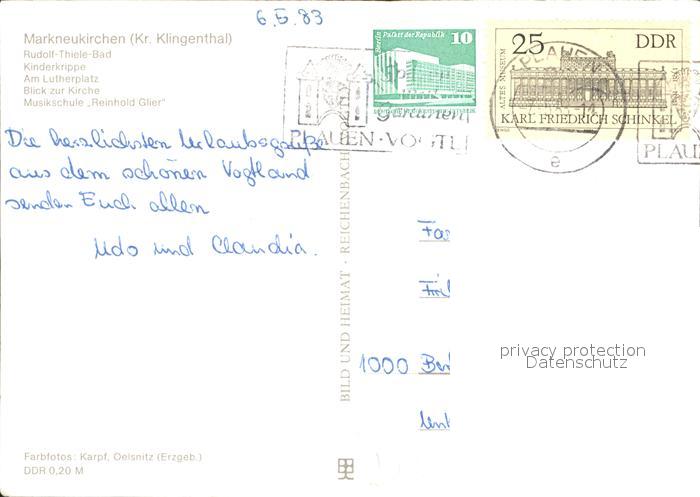 6.5.83
Markneukirchen (Kr. Klingenthal)
Rudolf-Thiele-Bad
Kinderkrippe
Am Lutherplatz
Blick zur Kirche
Musikschule „Reinhold Glier"
Berlin Palast der Republik 10
25 DDR
ALTES MUSEUM
KARL FRIEDRICH SCHINKEL
PLAUEN-VOGTL
PLAUE
e
Die herzlichsten Urlaubsgrüße
aus dem schönen Vogtland
senden Euch allen
Udo und Claudia.
BILD UND HEIMAT · REICHENBACH
1000
privacy protection
Datenschutz
Farbfotos: Karpf, Oelsnitz (Erzgeb.)
DDR 0,20 M